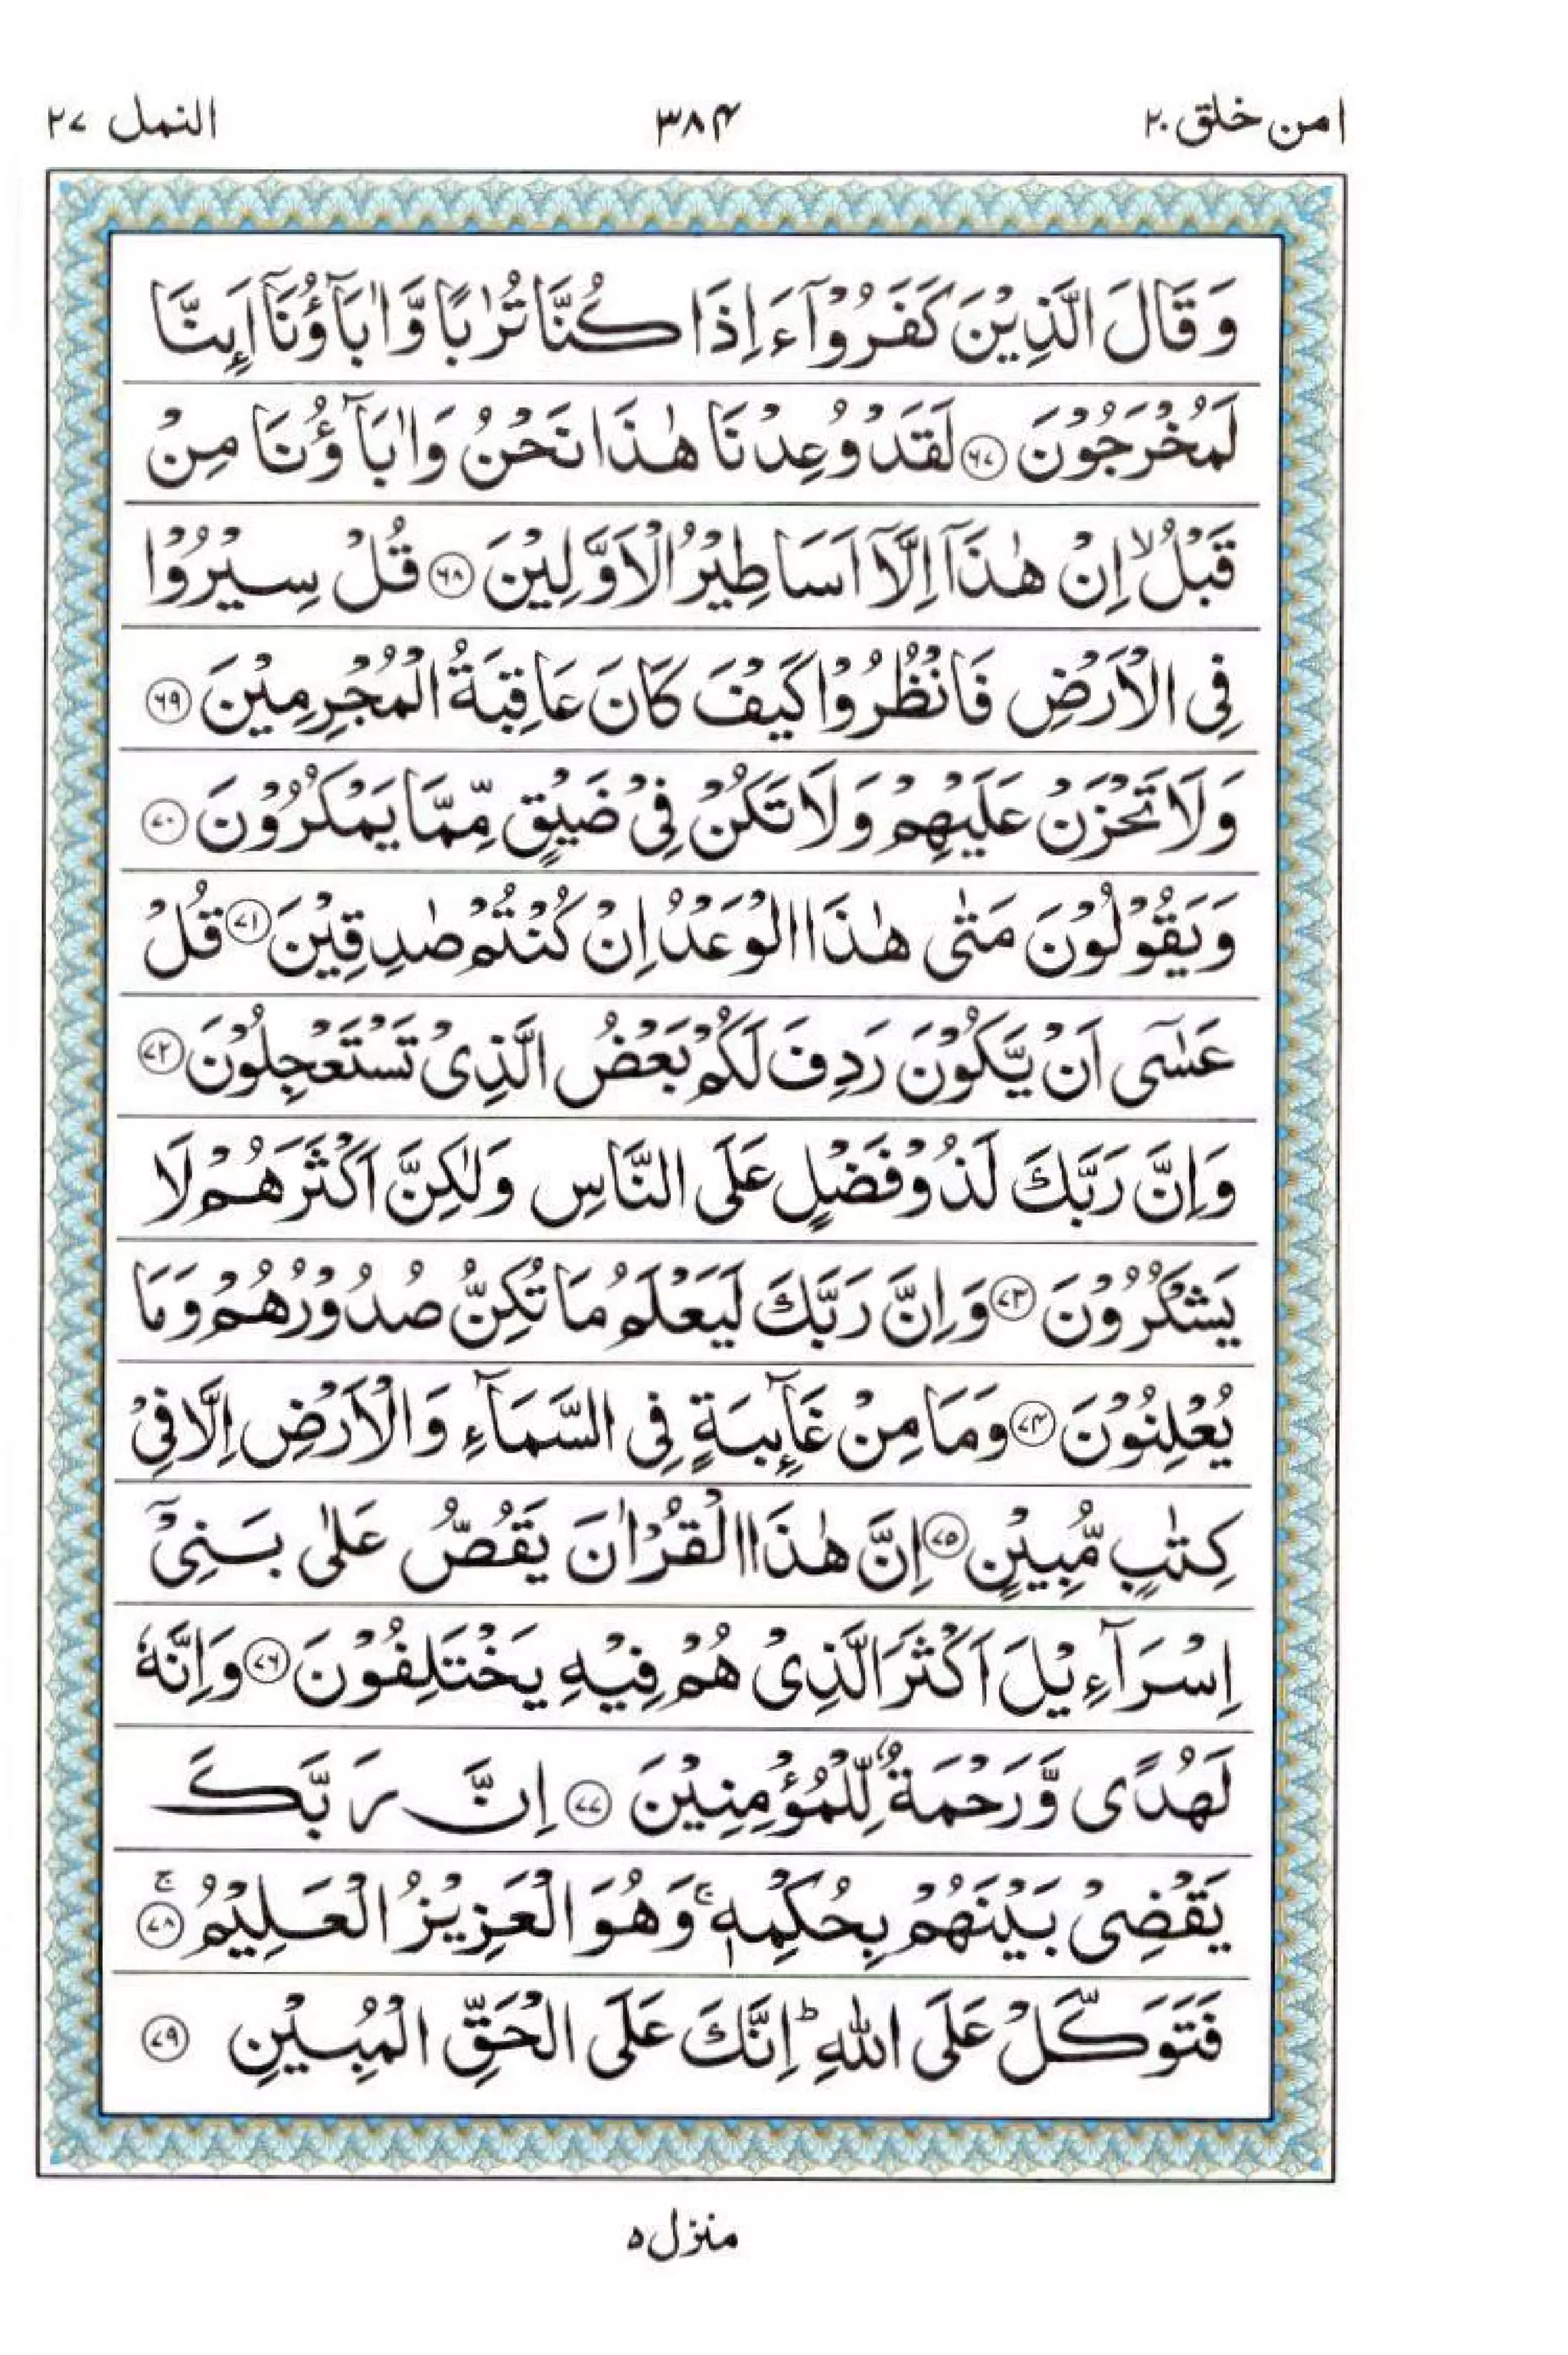 امن خلق ۲۰ ۳۸۴ النمل ۲۷
وَقَالَ الَّذِیْنَ كَفَرُوْۤا ءَاِذَا كُنَّا تُرٰبًا وَّاٰبَآؤُنَاۤ اَىِٕنَّا
لَمُخْرَجُوْنَ ۝۶۷ لَقَدْ وُعِدْنَا هٰذَا نَحْنُ وَاٰبَآؤُنَا مِنْ
قَبْلُ ۙ اِنْ هٰذَاۤ اِلَّاۤ اَسَاطِیْرُ الْاَوَّلِیْنَ ۝۶۸ قُلْ سِیْرُوْا
فِی الْاَرْضِ فَانْظُرُوْا كَیْفَ كَانَ عَاقِبَةُ الْمُجْرِمِیْنَ ۝۶۹
وَلَا تَحْزَنْ عَلَیْهِمْ وَلَا تَكُنْ فِیْ ضَیْقٍ مِّمَّا یَمْكُرُوْنَ ۝۷۰
وَیَقُوْلُوْنَ مَتٰی هٰذَا الْوَعْدُ اِنْ كُنْتُمْ صٰدِقِیْنَ ۝۷۱ قُلْ
عَسٰۤی اَنْ یَّكُوْنَ رَدِفَ لَكُمْ بَعْضُ الَّذِیْ تَسْتَعْجِلُوْنَ ۝۷۲
وَاِنَّ رَبَّكَ لَذُوْ فَضْلٍ عَلَی النَّاسِ وَلٰكِنَّ اَكْثَرَهُمْ لَا
یَشْكُرُوْنَ ۝۷۳ وَاِنَّ رَبَّكَ لَیَعْلَمُ مَا تُكِنُّ صُدُوْرُهُمْ وَمَا
یُعْلِنُوْنَ ۝۷۴ وَمَا مِنْ غَآىِٕبَةٍ فِی السَّمَآءِ وَالْاَرْضِ اِلَّا فِیْ
كِتٰبٍ مُّبِیْنٍ ۝۷۵ اِنَّ هٰذَا الْقُرْاٰنَ یَقُصُّ عَلٰی بَنِیْۤ
اِسْرَآءِیْلَ اَكْثَرَ الَّذِیْ هُمْ فِیْهِ یَخْتَلِفُوْنَ ۝۷۶ وَاِنَّهٗ
لَهُدًی وَّرَحْمَةٌ لِّلْمُؤْمِنِیْنَ ۝۷۷ اِنَّ رَبَّكَ
یَقْضِیْ بَیْنَهُمْ بِحُكْمِهٖ ۚ وَهُوَ الْعَزِیْزُ الْعَلِیْمُ ۝۷۸ۚ
فَتَوَكَّلْ عَلَی اللّٰهِ ؕ اِنَّكَ عَلَی الْحَقِّ الْمُبِیْنِ ۝۷۹
منزل ۵